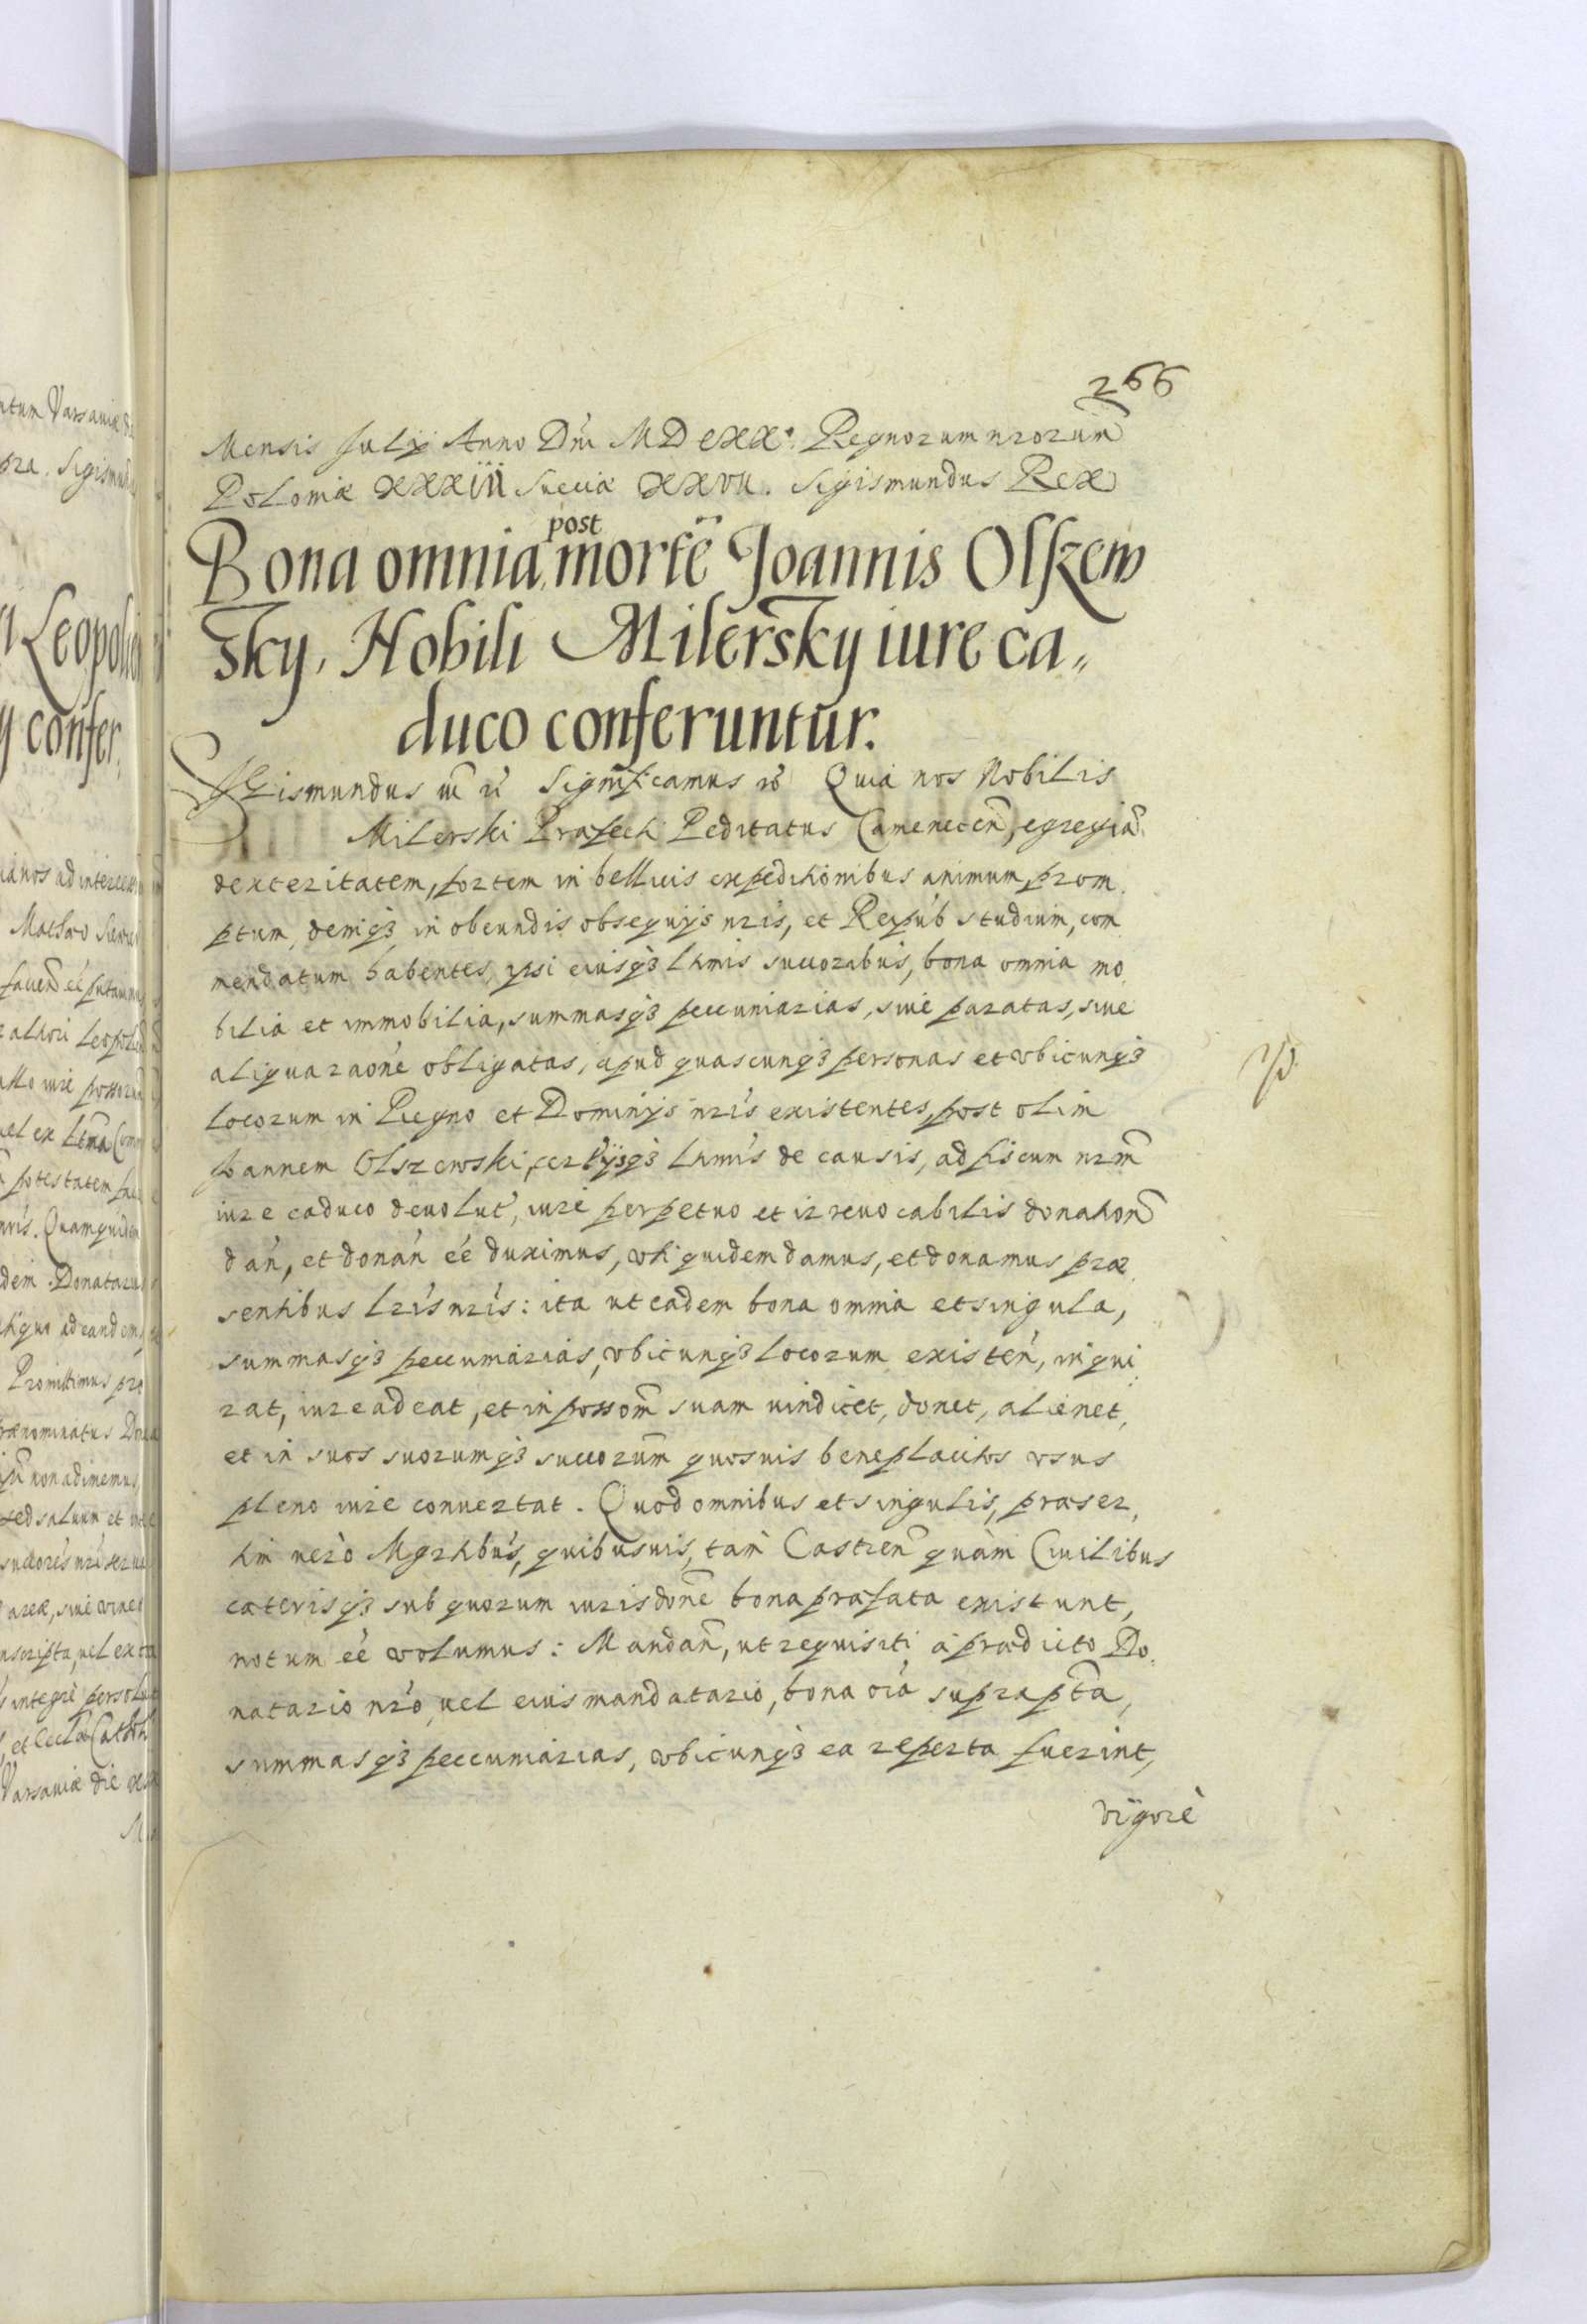 266
Mensis Julij Anno Dni M D CXX. Regnorum nrorum
Poloniæ XXXIII Sueciæ XXVII. Sigismundus Rex
Bona omnia post mortē Joannis Olszew
sky, Nobili Milersky iure ca„
duco conferuntur.
Sigismundus Significamus Quia nos Nobilis
Milerski Præfecti Peditatus Camenecen, egregiā
dexteritatem, fortem in bellicis expeditionibus animum, prom
ptum deniq3 in obeundis obsequijs nris, et Reipub studium, com
mendatum habentes, ipsi eiusq3 ltimis succoribus, bona omnia mo
bilia et immobilia, summasq3 peccuniarias, siue paratas, siue
aliqua raone obligatas, apud quascunq3 personas et vbicunq3
locorum in Regno et Dominijs nris existentes, post olim
Joannem Olszewski, certijsq3 ltimis de causis, ad fiscum nrm
iure caduco deuolut, iure perpetuo et irreuocabilis donation
dan, et donan ee duximus, vti quidem damus, et donamus præ
sentibus lris nris: ita ut eadem bona omnia et singula,
summasq3 peccuniarias, vbicunq3 locorum existen, inqui
rat, iure adeat, et in possom suam uindicet, donet, alienet,
et in suos suorumq3 succorum quosuis beneplacitos vsus
pleno iure conuertat. Quod omnibus et singulis, præser,
tim uero Mgrtibus, quibusuis, tam Castren quàm Ciuilibus
cæterisq3 sub quorum iurisdone bona præfata existunt,
notum ee volumus: Mandan, ut requisiti à prædicto Do
natario nro, uel eius mandatario, bona oia suprapta,
summasq3 peccuniarias, vbicunq3 ea reperta fuerint,
vigore